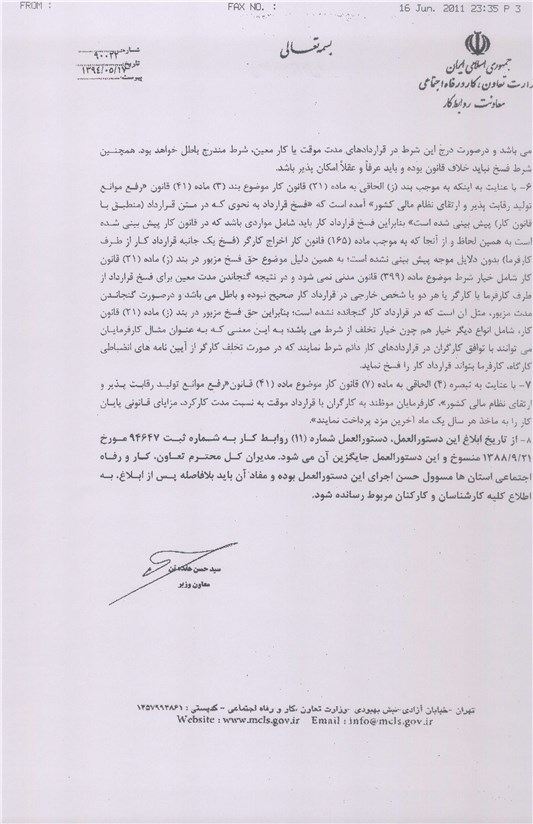 FROM : FAX NO. : 16 Jun. 2011 23:35 P 3
بسمه تعالی
جمهوری اسلامی ایران
وزارت تعاون، کار و رفاه اجتماعی
معاونت روابط کار
شماره ۹۰۰۳۲
تاریخ ۱۳۹۴/۰۵/۱۷
پیوست
می باشد و درصورت درج این شرط در قراردادهای مدت موقت یا کار معین، شرط مندرج باطل خواهد بود. همچنین
شرط فسخ نباید خلاف قانون بوده و باید عرفاً و عقلاً امکان پذیر باشد.
۶- با عنایت به اینکه به موجب بند (ز) الحاقی به ماده (۲۱) قانون کار موضوع بند (۳) ماده (۴۱) قانون «رفع موانع
تولید رقابت پذیر و ارتقای نظام مالی کشور» آمده است که «فسخ قرارداد به نحوی که در متن قرارداد (منطبق با
قانون کار) پیش بینی شده است» بنابراین فسخ قرارداد کار باید شامل مواردی باشد که در قانون کار پیش بینی شده
است به همین لحاظ و از آنجا که به موجب ماده (۱۶۵) قانون کار اخراج کارگر (فسخ یک جانبه قرارداد کار از طرف
کارفرما) بدون دلایل موجه پیش بینی نشده است؛ به همین دلیل موضوع حق فسخ مزبور در بند (ز) ماده (۲۱) قانون
کار شامل خیار شرط موضوع ماده (۳۹۹) قانون مدنی نمی شود و در نتیجه گنجاندن مدت معین برای فسخ قرارداد از
طرف کارفرما یا کارگر یا هر دو یا شخص خارجی در قرارداد کار صحیح نبوده و باطل می باشد و درصورت گنجاندن
مدت مزبور، مثل آن است که در قرارداد کار گنجانده نشده است؛ بنابراین حق فسخ مزبور در بند (ز) ماده (۲۱) قانون
کار، شامل انواع دیگر خیار هم چون خیار تخلف از شرط می باشد؛ به این معنی که به عنوان مثال کارفرمایان
می توانند با توافق کارگران در قراردادهای کار دائم شرط نمایند که در صورت تخلف کارگر از آیین نامه های انضباطی
کارگاه، کارفرما بتواند قرارداد کار را فسخ نماید.
۷- با عنایت به تبصره (۴) الحاقی به ماده (۷) قانون کار موضوع ماده (۴۱) قانون«رفع موانع تولید رقابت پذیر و
ارتقای نظام مالی کشور»، کارفرمایان موظفند به کارگران با قرارداد موقت به نسبت مدت کارکرد، مزایای قانونی پایان
کار را به ماخذ هر سال یک ماه آخرین مزد پرداخت نمایند».
۸- از تاریخ ابلاغ این دستورالعمل، دستورالعمل شماره (۱۱) روابط کار به شماره ثبت ۹۴۶۴۷ مورخ
۱۳۸۸/۹/۲۱ منسوخ و این دستورالعمل جایگزین آن می شود. مدیران کل محترم تعاون، کار و رفاه
اجتماعی استان ها مسوول حسن اجرای این دستورالعمل بوده و مفاد آن باید بلافاصله پس از ابلاغ، به
اطلاع کلیه کارشناسان و کارکنان مربوط رسانده شود.
سید حسن هفده تن
معاون وزیر
تهران -خیابان آزادی-نبش بهبودی -وزارت تعاون ،کار و رفاه اجتماعی - کدپستی : ۱۴۵۷۹۹۴۸۶۱
Website : www.mcls.gov.ir Email : info@mcls.gov.ir